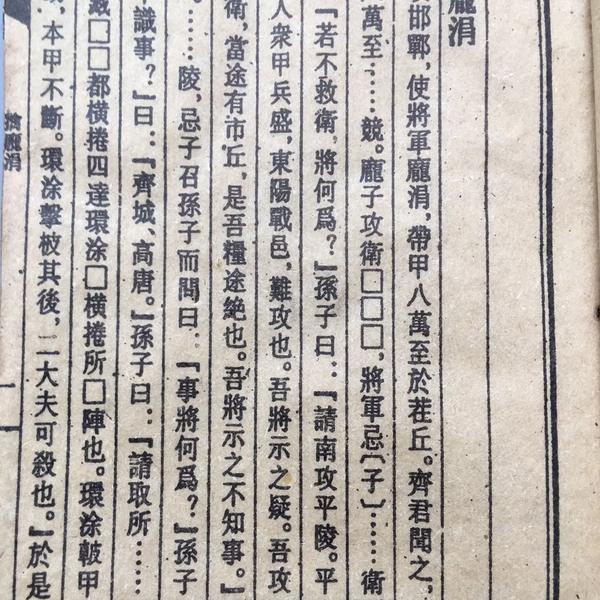 龐涓
邯鄲，使將軍龐涓，帶甲八萬至於茬丘。齊君聞之，
萬至……競。龐子攻衛□□□，將軍忌〔子〕……衛
『若不救衛，將何爲？』孫子曰：『請南攻平陵。平
人衆甲兵盛，東陽戰邑，難攻也。吾將示之疑。吾攻
衛，當途有市丘，是吾糧途絶也。吾將示之不知事。』
。……陵，忌子召孫子而問曰：『事將何爲？』孫子
識事？』曰：『齊城、高唐。』孫子曰：『請取所……
□□都橫捲四達環涂□橫捲所□陣也。環涂軷甲
，本甲不斷。環涂擊柀其後，二大夫可殺也。』於是
擒龐涓